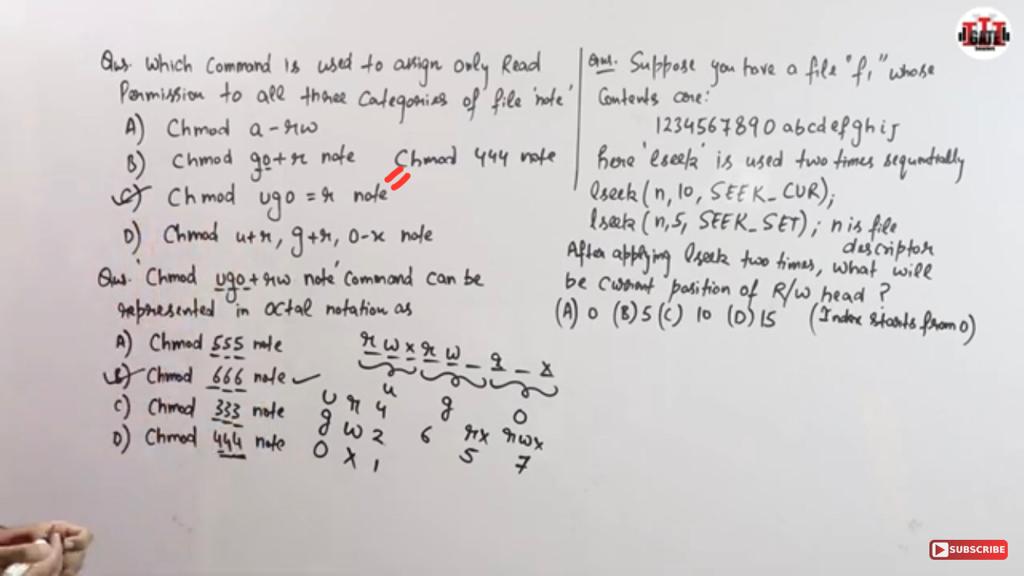 Ques. Which Command is used to assign only Read
Permission to all three Categories of file 'note'
A) Chmod a-rw
B) Chmod go+r note Chmod 444 note
C) Chmod ugo=r note
D) Chmod u+r, g+r, o-x note
Ques. 'Chmod ugo+rw note' Command can be
represented in octal notation as
A) Chmod 555 note
B) Chmod 666 note
C) Chmod 333 note
D) Chmod 444 note
r w x r w - r - x
u g o
u r 4
g w 2 6 rx rwx
o x 1 5 7
Ques. Suppose you have a file "f1" whose
Contents are:
1234567890abcdefghij
here 'lseek' is used two times sequentially
lseek(n, 10, SEEK_CUR);
lseek(n, 5, SEEK_SET); n is file
descriptor
After applying lseek two times, what will
be current position of R/W head?
(A) 0 (B) 5 (C) 10 (D) 15 (Index starts from 0)
GATE
SUBSCRIBE